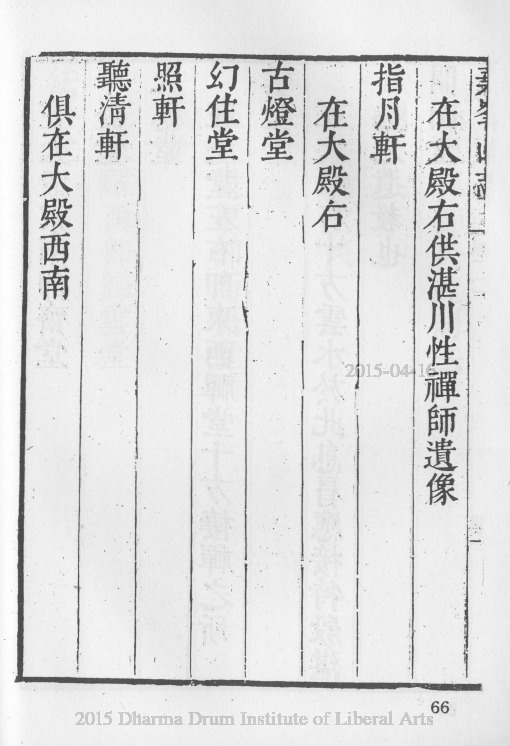 在大殿右供湛川性禪師遺像
指月軒
在大殿右
古燈堂
幻住堂
照軒
聽清軒
俱在大殿西南
2015-04-16
66
2015 Dharma Drum Institute of Liberal Arts